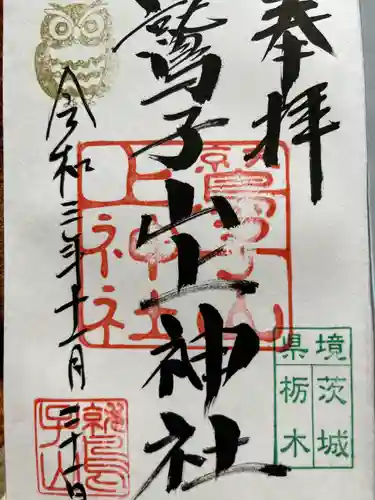 奉拝
鷲子山上神社
令和三年十一月二十一日
鷲子山
上神社
県境
茨城
栃木